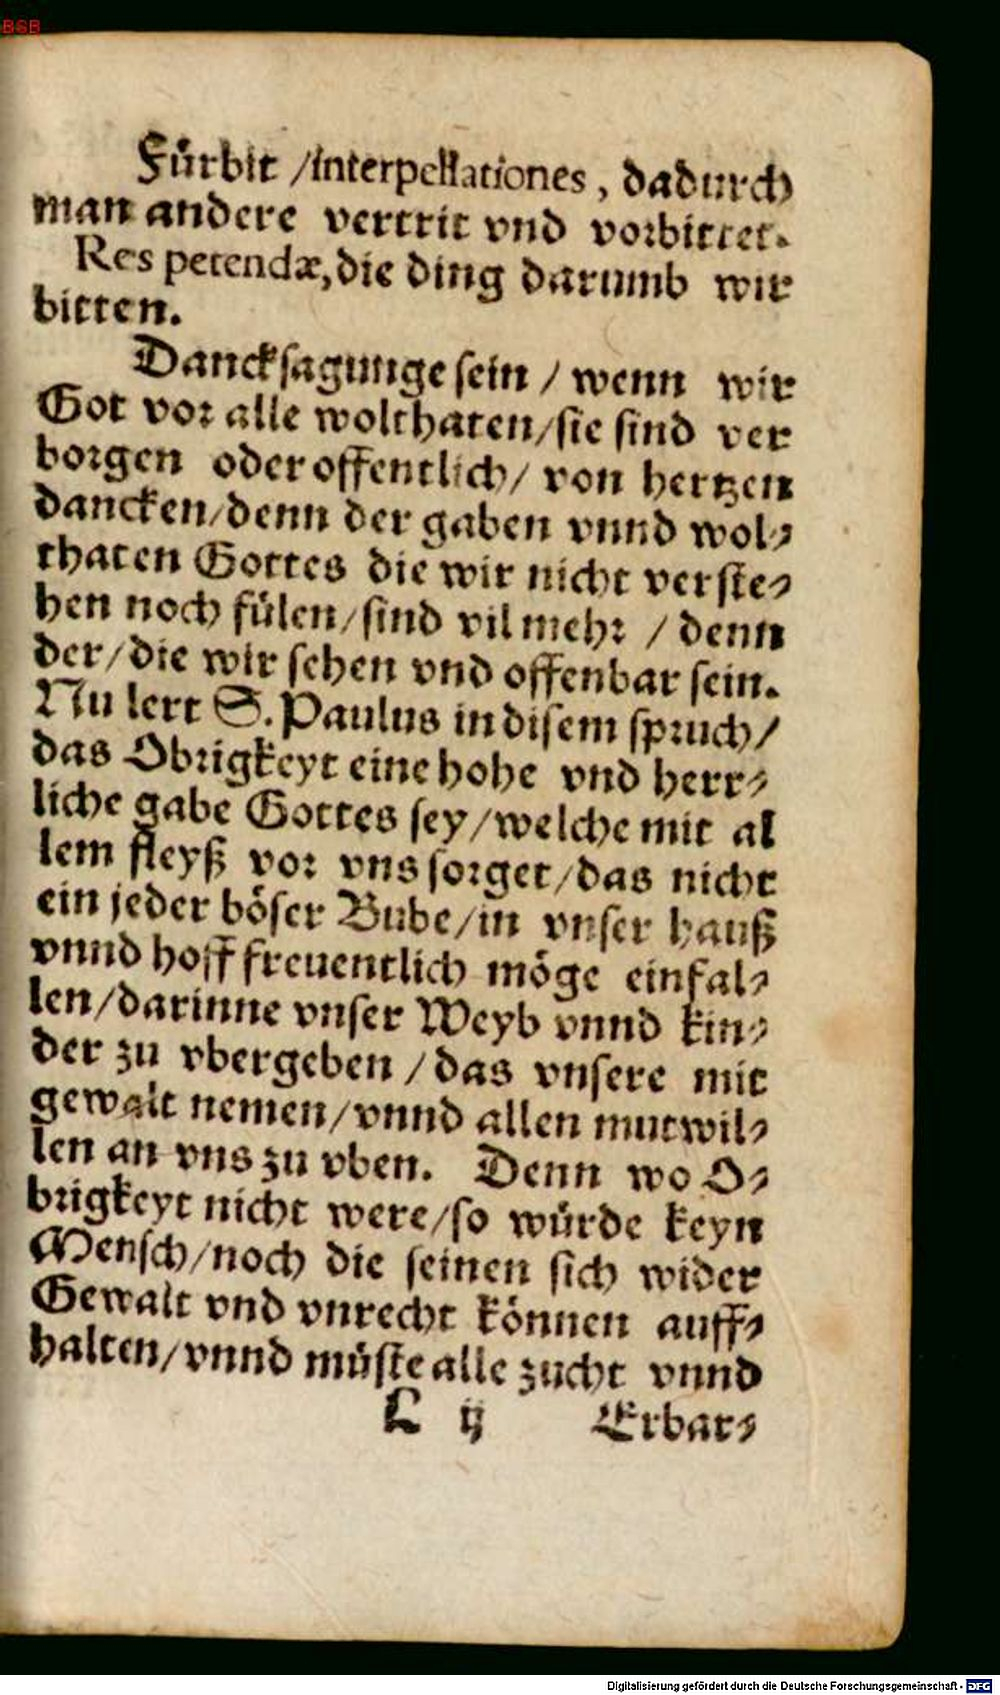 BSB
Fürbit /interpellationes, dadurch
man andere vertrit vnd vorbittet.
Res petendæ, die ding darumb wir
bitten.
Dancksagunge sein / wenn wir
Got vor alle wolthaten/sie sind ver
borgen oder offentlich/ von hertzen
dancken/denn der gaben vnnd wol⸗
thaten Gottes die wir nicht verste⸗
hen noch fülen/sind vil mehr / denn
der/die wir sehen vnd offenbar sein.
Nu lert S. Paulus in disem spruch/
das Obrigkeyt eine hohe vnd herr⸗
liche gabe Gottes sey/welche mit al
lem fleyß vor vns sorget/das nicht
ein jeder böser Bube/in vnser hauß
vnnd hoff freuentlich möge einfal⸗
len/darinne vnser Weyb vnnd kin⸗
der zu vbergeben /das vnsere mit
gewalt nemen/vnnd allen mutwil⸗
len an vns zu vben. Denn wo O⸗
brigkeyt nicht were/so würde keyn
Mensch/noch die seinen sich wider
Gewalt vnd vnrecht können auff⸗
halten/vnnd müste alle zucht vnnd
L ij Erbar⸗
Digitalisierung gefördert durch die Deutsche Forschungsgemeinschaft - DFG